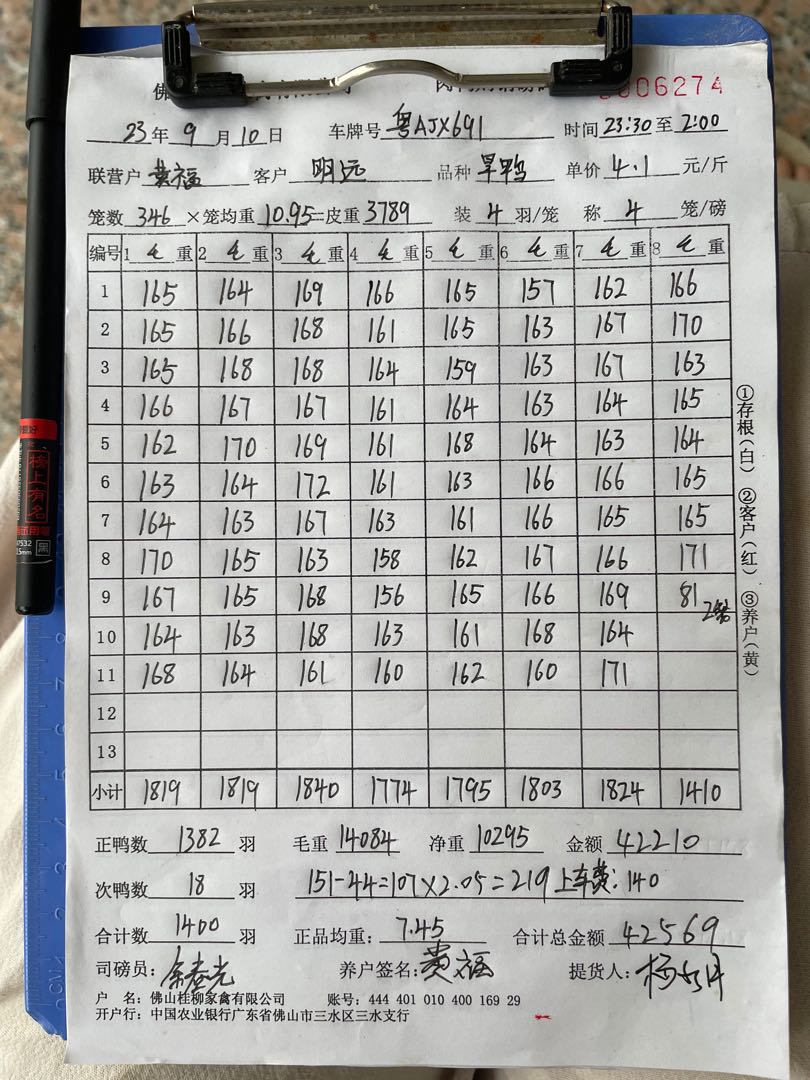 0006274
23年9月10日 车牌号粤AJX691 时间23:30至2:00
联营户黄福 客户明远 品种旱鸭 单价4.1元/斤
笼数346×笼均重10.95=皮重3789 装4羽/笼 称4笼/磅
编号 1毛重 2毛重 3毛重 4毛重 5毛重 6毛重 7毛重 8毛重
1 165 164 169 166 165 157 162 166
2 165 166 168 161 165 163 167 170
3 165 168 168 164 159 163 167 163
4 166 167 167 161 164 163 164 165
5 162 170 169 161 168 164 163 164
6 163 164 172 161 163 166 166 165
7 164 163 167 163 161 166 165 165
8 170 165 163 158 162 167 166 171
9 167 165 168 156 165 166 169 81 2笼
10 164 163 168 163 161 168 164
11 168 164 161 160 162 160 171
12
13
小计 1819 1819 1840 1774 1795 1803 1824 1410
正鸭数1382羽 毛重14084 净重10295 金额42210
次鸭数18羽 151-44=107×2.05=219 上车费:140
合计数1400羽 正品均重:7.45 合计总金额42569
司磅员:余 光 养户签名:黄福 提货人:杨
户 名:佛山桂柳家禽有限公司 账号:444 401 010 400 169 29
开户行:中国农业银行广东省佛山市三水区三水支行
①存根(白) ②客户(红) ③养户(黄)
榜上有名
黑